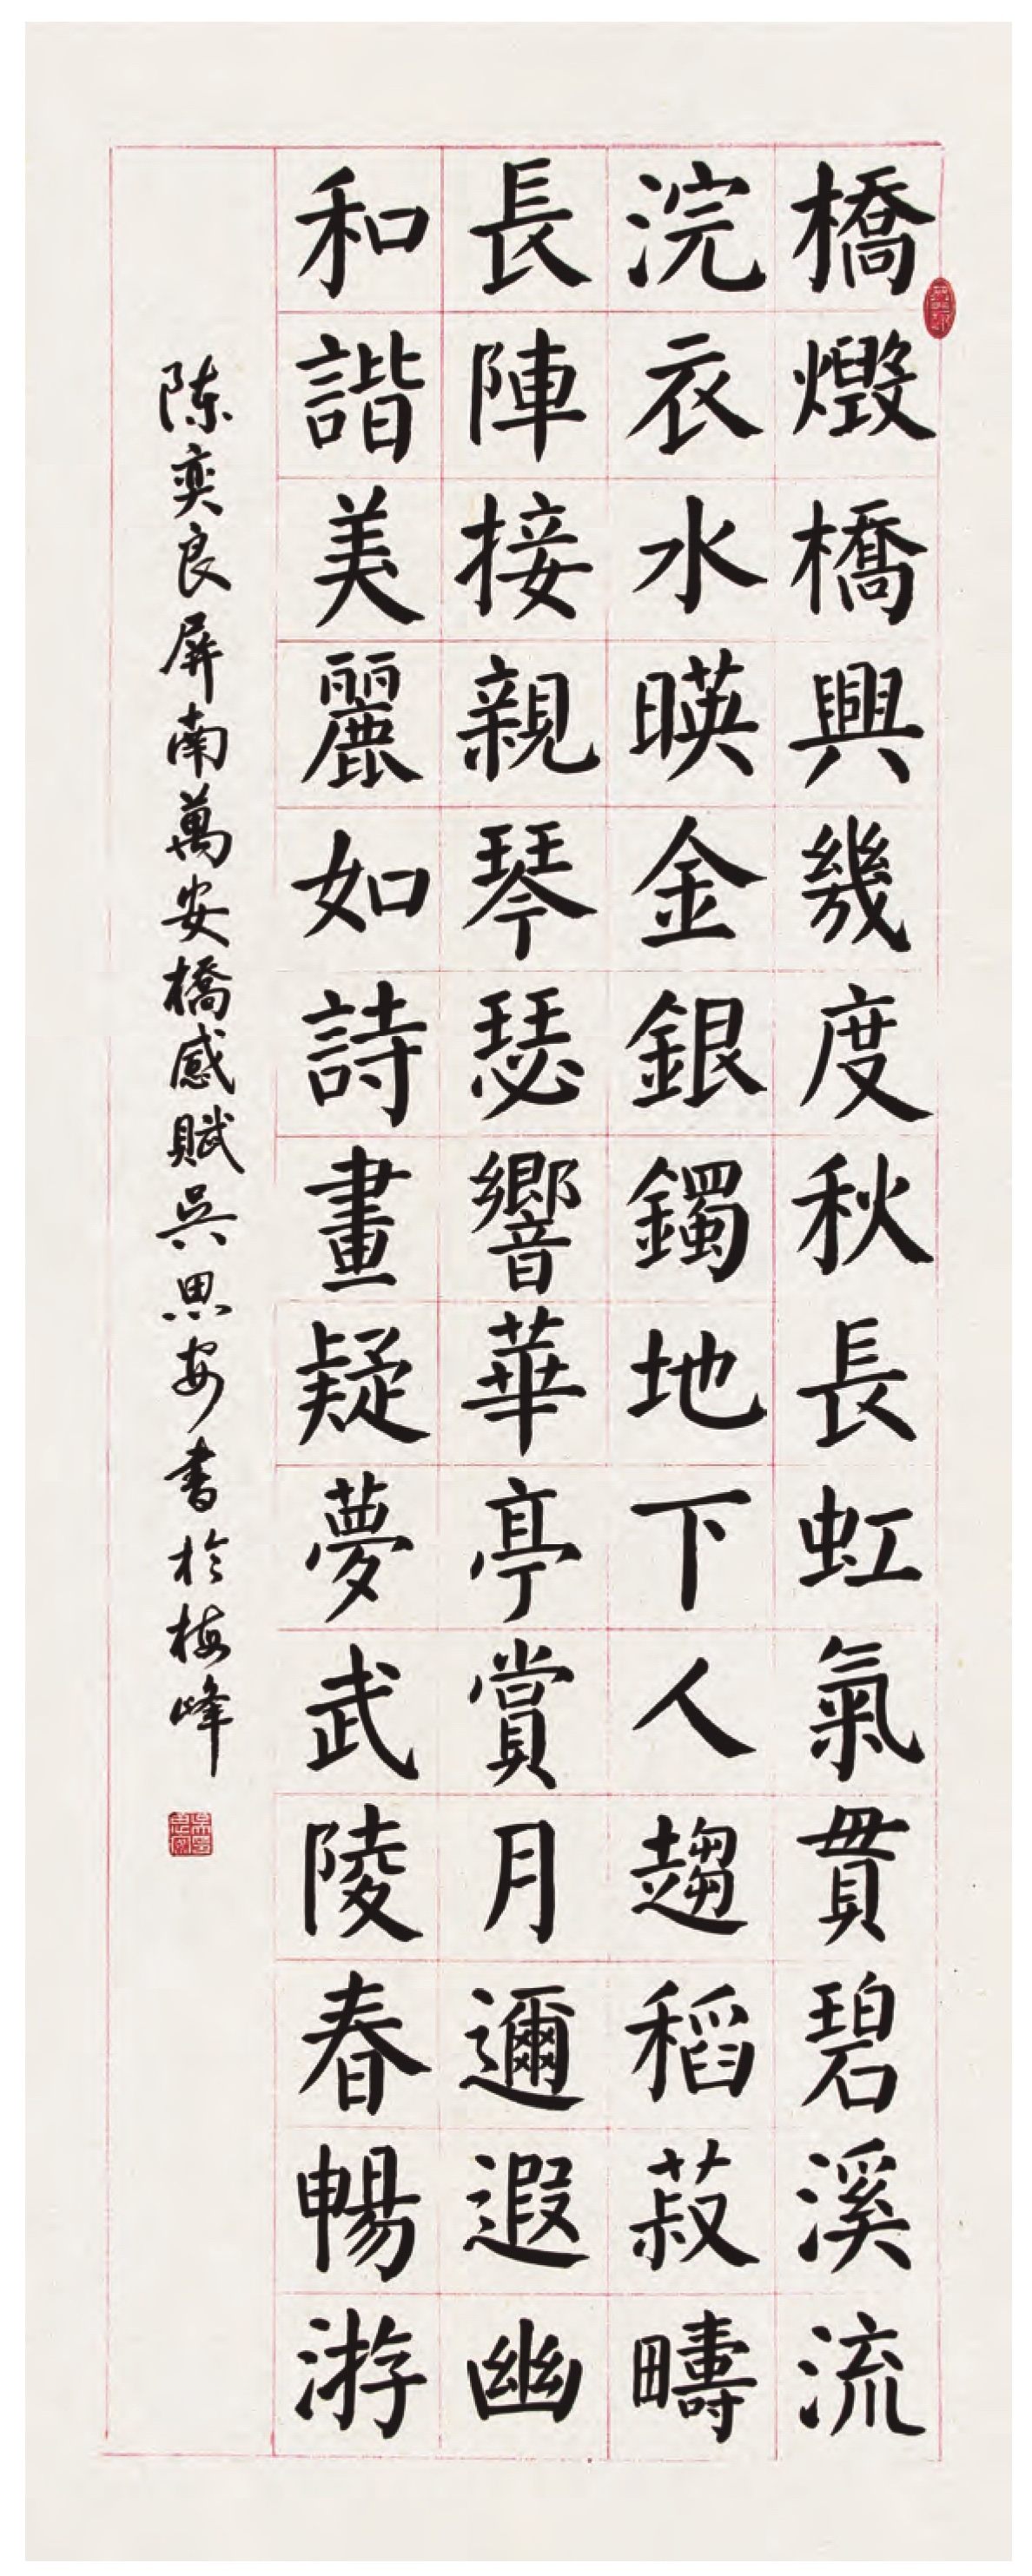 橋燬橋興幾度秋長虹氣貫碧溪流
浣衣水暎金銀鐲地下人趨稻菽疇
長陣接親琴瑟響華亭賞月邇遐幽
和諧美麗如詩畫疑夢武陵春暢游
陈奕良屏南萬安橋感賦吳思安書於梅峰